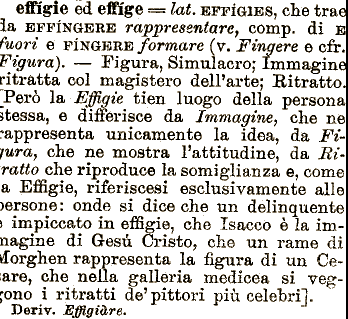 effígie ed effíge = lat. EFFÍGIES, che trae
da EFFÍNGERE rappresentare, comp. di E
fuori e FÍNGERE formare (v. Fingere e cfr.
Figura). — Figura, Simulacro; Immagine
ritratta col magistero dell'arte; Ritratto.
[Però la Effigie tien luogo della persona
stessa, e differisce da Immagine, che ne
rappresenta unicamente la idea, da Fi-
gura, che ne mostra l'attitudine, da Ri-
tratto che riproduce la somiglianza e, come
la Effigie, riferiscesi esclusivamente alle
persone: onde si dice che un delinquente
è impiccato in effigie, che Isacco è la im-
magine di Gesú Cristo, che un rame di
Morghen rappresenta la figura di un Ce-
sare, che nella galleria medicea si veg-
gono i ritratti de' pittori più celebri].
Deriv. Effigiàre.